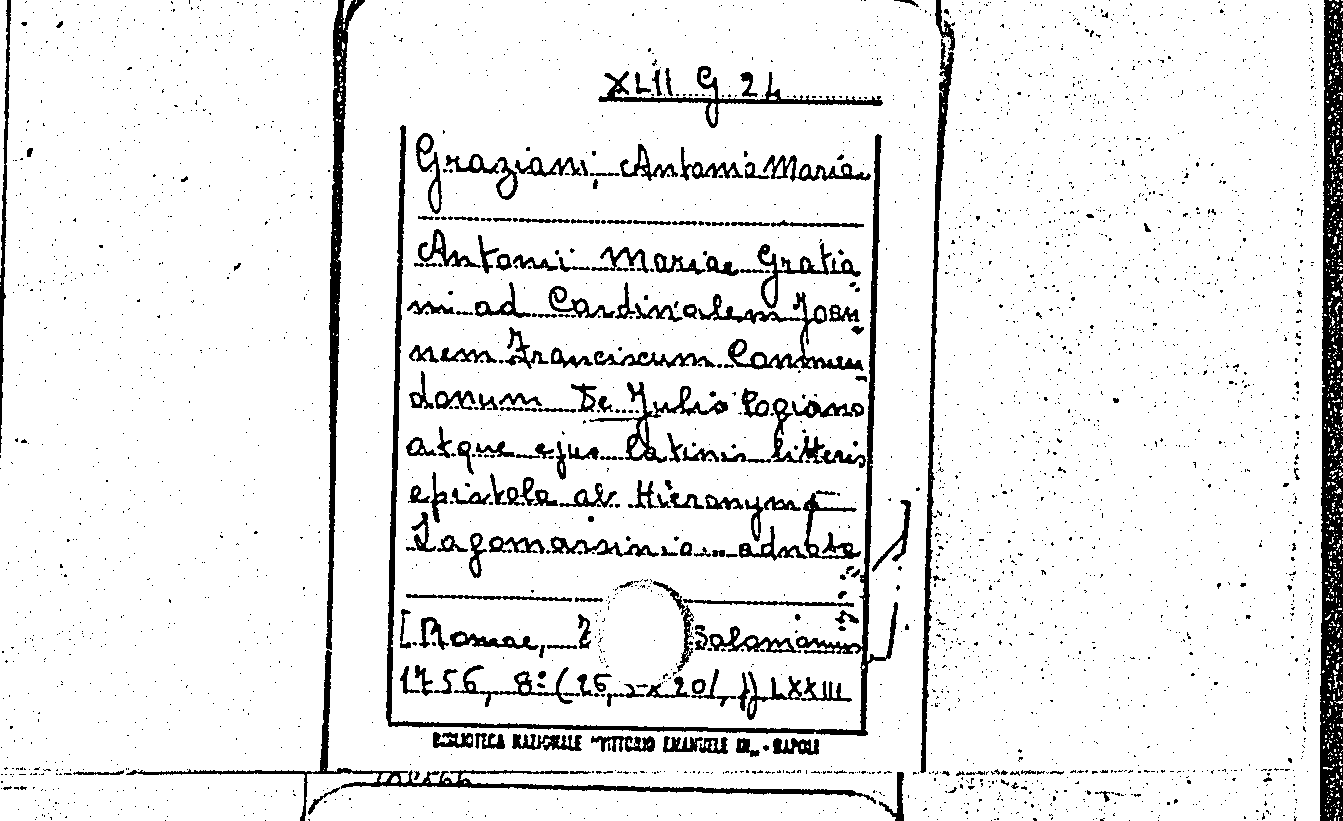 XLII G 24
Graziani, Antonio Maria
Antonii Mariae Gratia
ni ad Cardinalem Joan
nem Franciscum Commen
donum De Julio Pogiano
atque ejus latinis litteris
epistola ab Hieronymo
Lagomarsinio... adnota
[Romae, Salomonius
1756, 8º (26, LXXIII
BIBLIOTECA NAZIONALE "VITTORIO EMANUELE III" - NAPOLI